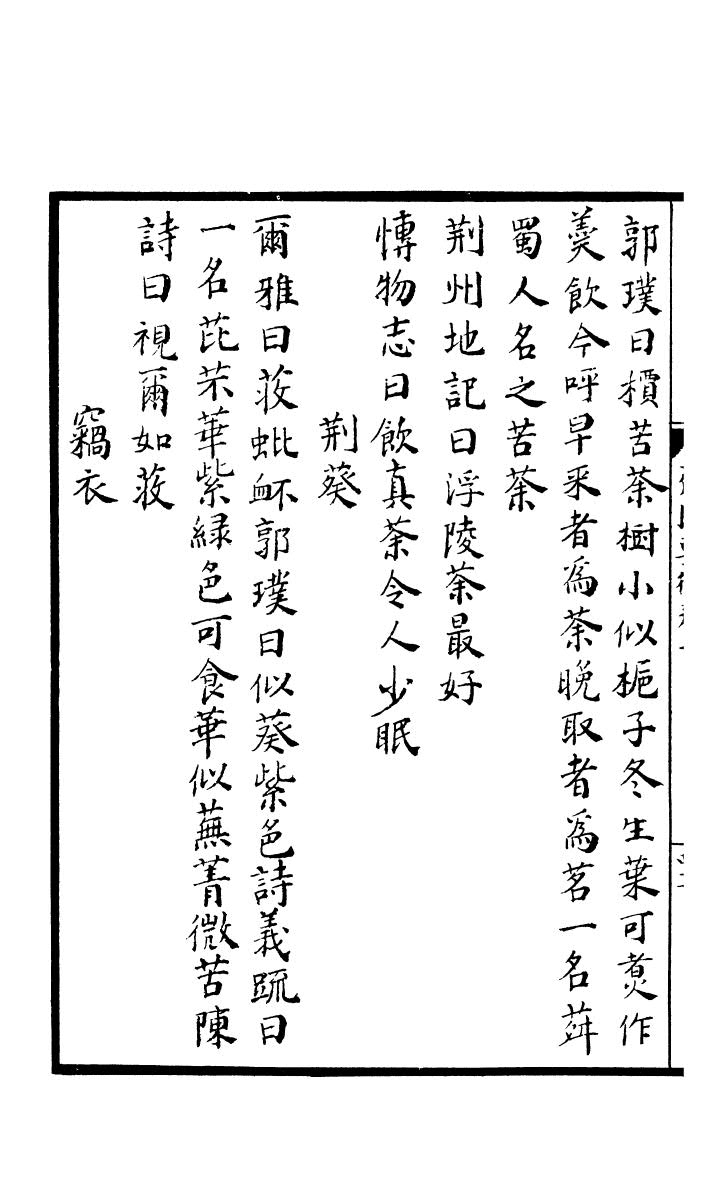 郭璞曰檟苦荼樹小似梔子冬生葉可煮作
羮飲今呼早采者爲茶晚取者爲茗一名荈
蜀人名之苦荼
荆州地記曰浮陵茶最好
愽物志曰飲真茶令人少眠
荆葵
爾雅曰荍蚍衃郭璞曰似葵紫色詩義疏曰
一名芘芣華紫緑色可食華似蕪菁微苦陳
詩曰視爾如荍
竊衣